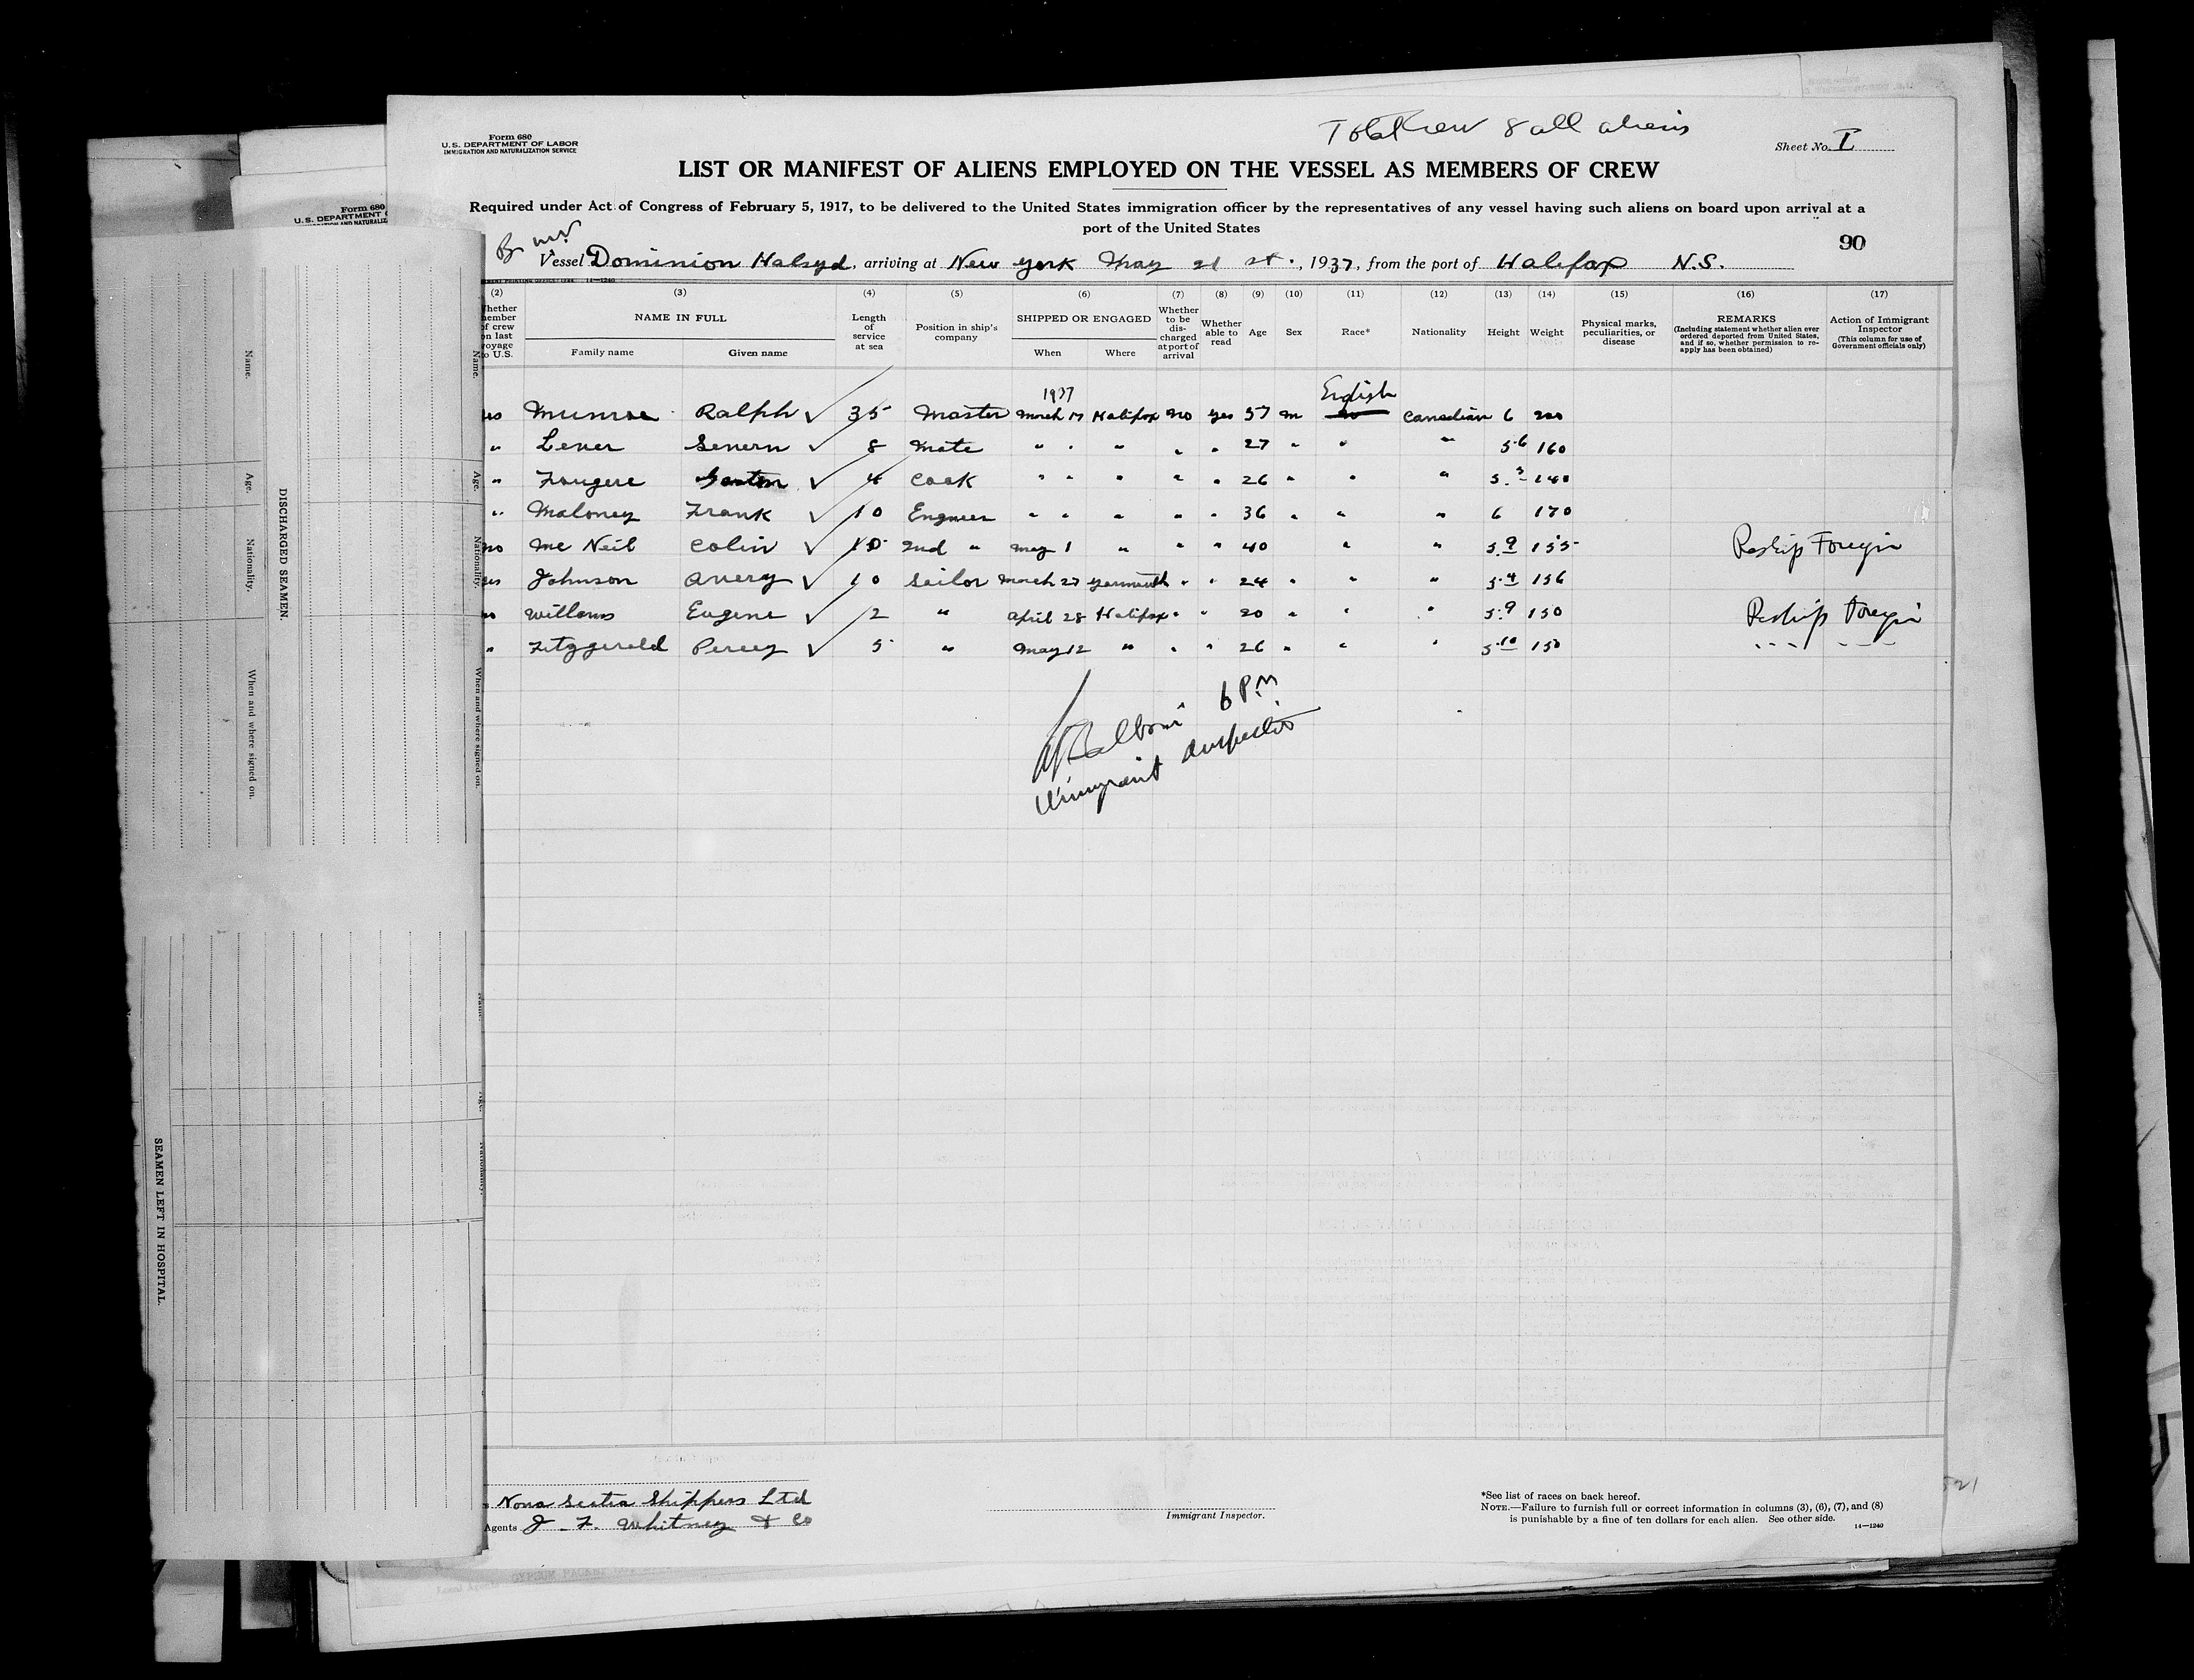 Total Crew 8 all aliens
Form 680
U.S. DEPARTMENT OF LABOR
IMMIGRATION AND NATURALIZATION SERVICE
Sheet No. I
LIST OR MANIFEST OF ALIENS EMPLOYED ON THE VESSEL AS MEMBERS OF CREW
Required under Act of Congress of February 5, 1917, to be delivered to the United States immigration officer by the representatives of any vessel having such aliens on board upon arrival at a
port of the United States
90
Vessel Dominion Halsyd, arriving at New York May 21 st., 1937, from the port of Halifax N.S.
(2) (3) (4) (5) (6) (7) (8) (9) (10) (11) (12) (13) (14) (15) (16) (17)
Whether member of crew on last voyage to U.S.
NAME IN FULL
Family name Given name
Length of service at sea
Position in ship's company
SHIPPED OR ENGAGED
When Where
Whether to be discharged at port of arrival
Whether able to read
Age
Sex
Race*
Nationality
Height
Weight
Physical marks, peculiarities, or disease
REMARKS
(Including statement whether alien ever ordered deported from United States, and if so, whether permission to reapply has been obtained)
Action of Immigrant Inspector
(This column for use of Government officials only)
1937 English
Munroe Ralph ✓ 35 Master March 17 Halifax no yes 57 m Canadian 6 200
" Lever Severn ✓ 8 Mate " " " " " 27 " " " 5.6 160
" Fougere ✓ 4 Cook " " " " " 26 " " " 5.3 140
" Maloney Frank ✓ 10 Engineer " " " " " 36 " " " 6 170
no Mc Neil Colin ✓ 10 2nd " May 1 " " " 40 " " 5.9 155 Reship Foreign
yes Johnson Avery ✓ 10 Sailor March 27 Yarmouth " " 24 " " " 5.4 156
no Willows Eugene ✓ 2 " April 28 Halifax " " 20 " " " 5.9 150 Reship Foreign
" Fitzgerald Percy ✓ 5 " May 12 " " " 26 " " " 5.10 150 " "
6 PM
Immigrant Inspector
Nova Scotia Shippers Ltd
Agents J. F. Whitney & Co
Immigrant Inspector.
*See list of races on back hereof.
NOTE.—Failure to furnish full or correct information in columns (3), (6), (7), and (8)
is punishable by a fine of ten dollars for each alien. See other side.
14—1240
Form 680
U.S. DEPARTMENT
Name.
Age.
Nationality.
When and where signed on.
DISCHARGED SEAMEN.
Name.
Age.
Nationality.
When and where signed on.
SEAMEN LEFT IN HOSPITAL.